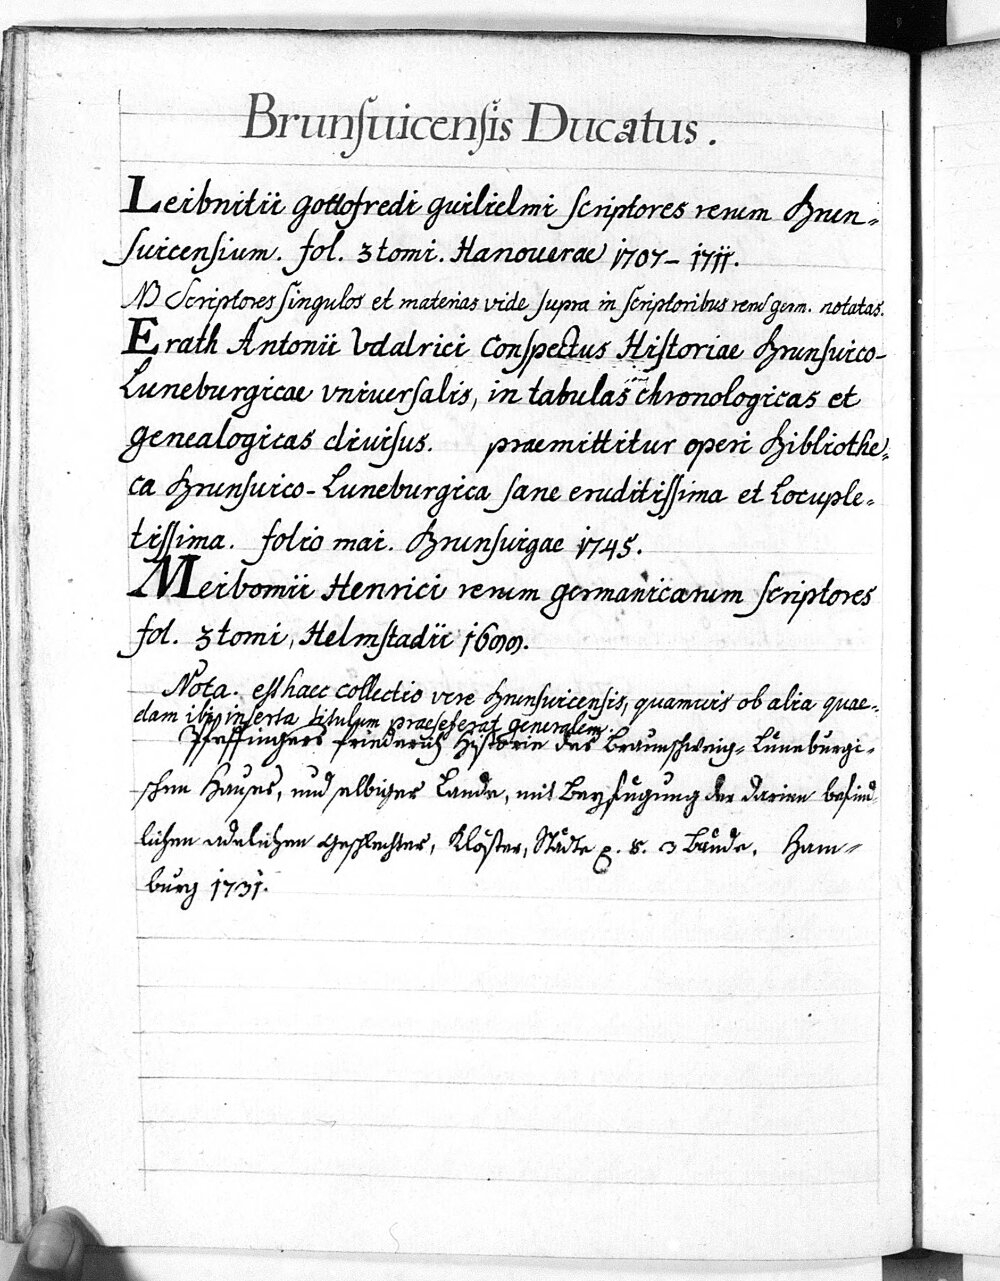 Brunsuicensis Ducatus.
Leibnitii gottofredi guilielmi scriptores rerum Brun-
suicensium. fol. 3 tomi. Hanouerae 1707– 1711.
NB Scriptores singulos et materias vide supra in scriptoribus rerum germ. notatas.
Erath Antonii Vdalrici Conspectus Historiae Brunsuico-
Luneburgicae vniuersalis, in tabulas chronologicas et
genealogicas diuisus. praemittitur operi Bibliothe-
ca Brunsuico-Luneburgica sane eruditissima et Locuple-
tissima. folio mai. Brunsuigae 1745.
Meibomii Henrici rerum germanicarum scriptores
fol. 3 tomi, Helmstadii 1699.
Nota. est haec collectio vere brunsuicensis, quamuis ob alia quae-
dam ibi inserta titulum praeseferat generalem.
Pfeffingers friederich Historie des Braunschweig-Lüneburgi-
schen Hauses, und selbiger Lande, mit Beyfügung der darinn befind
lichen adelichen Geschlechter, Klöster, Städte p. 8. 3 Bände. Ham-
burg 1731.